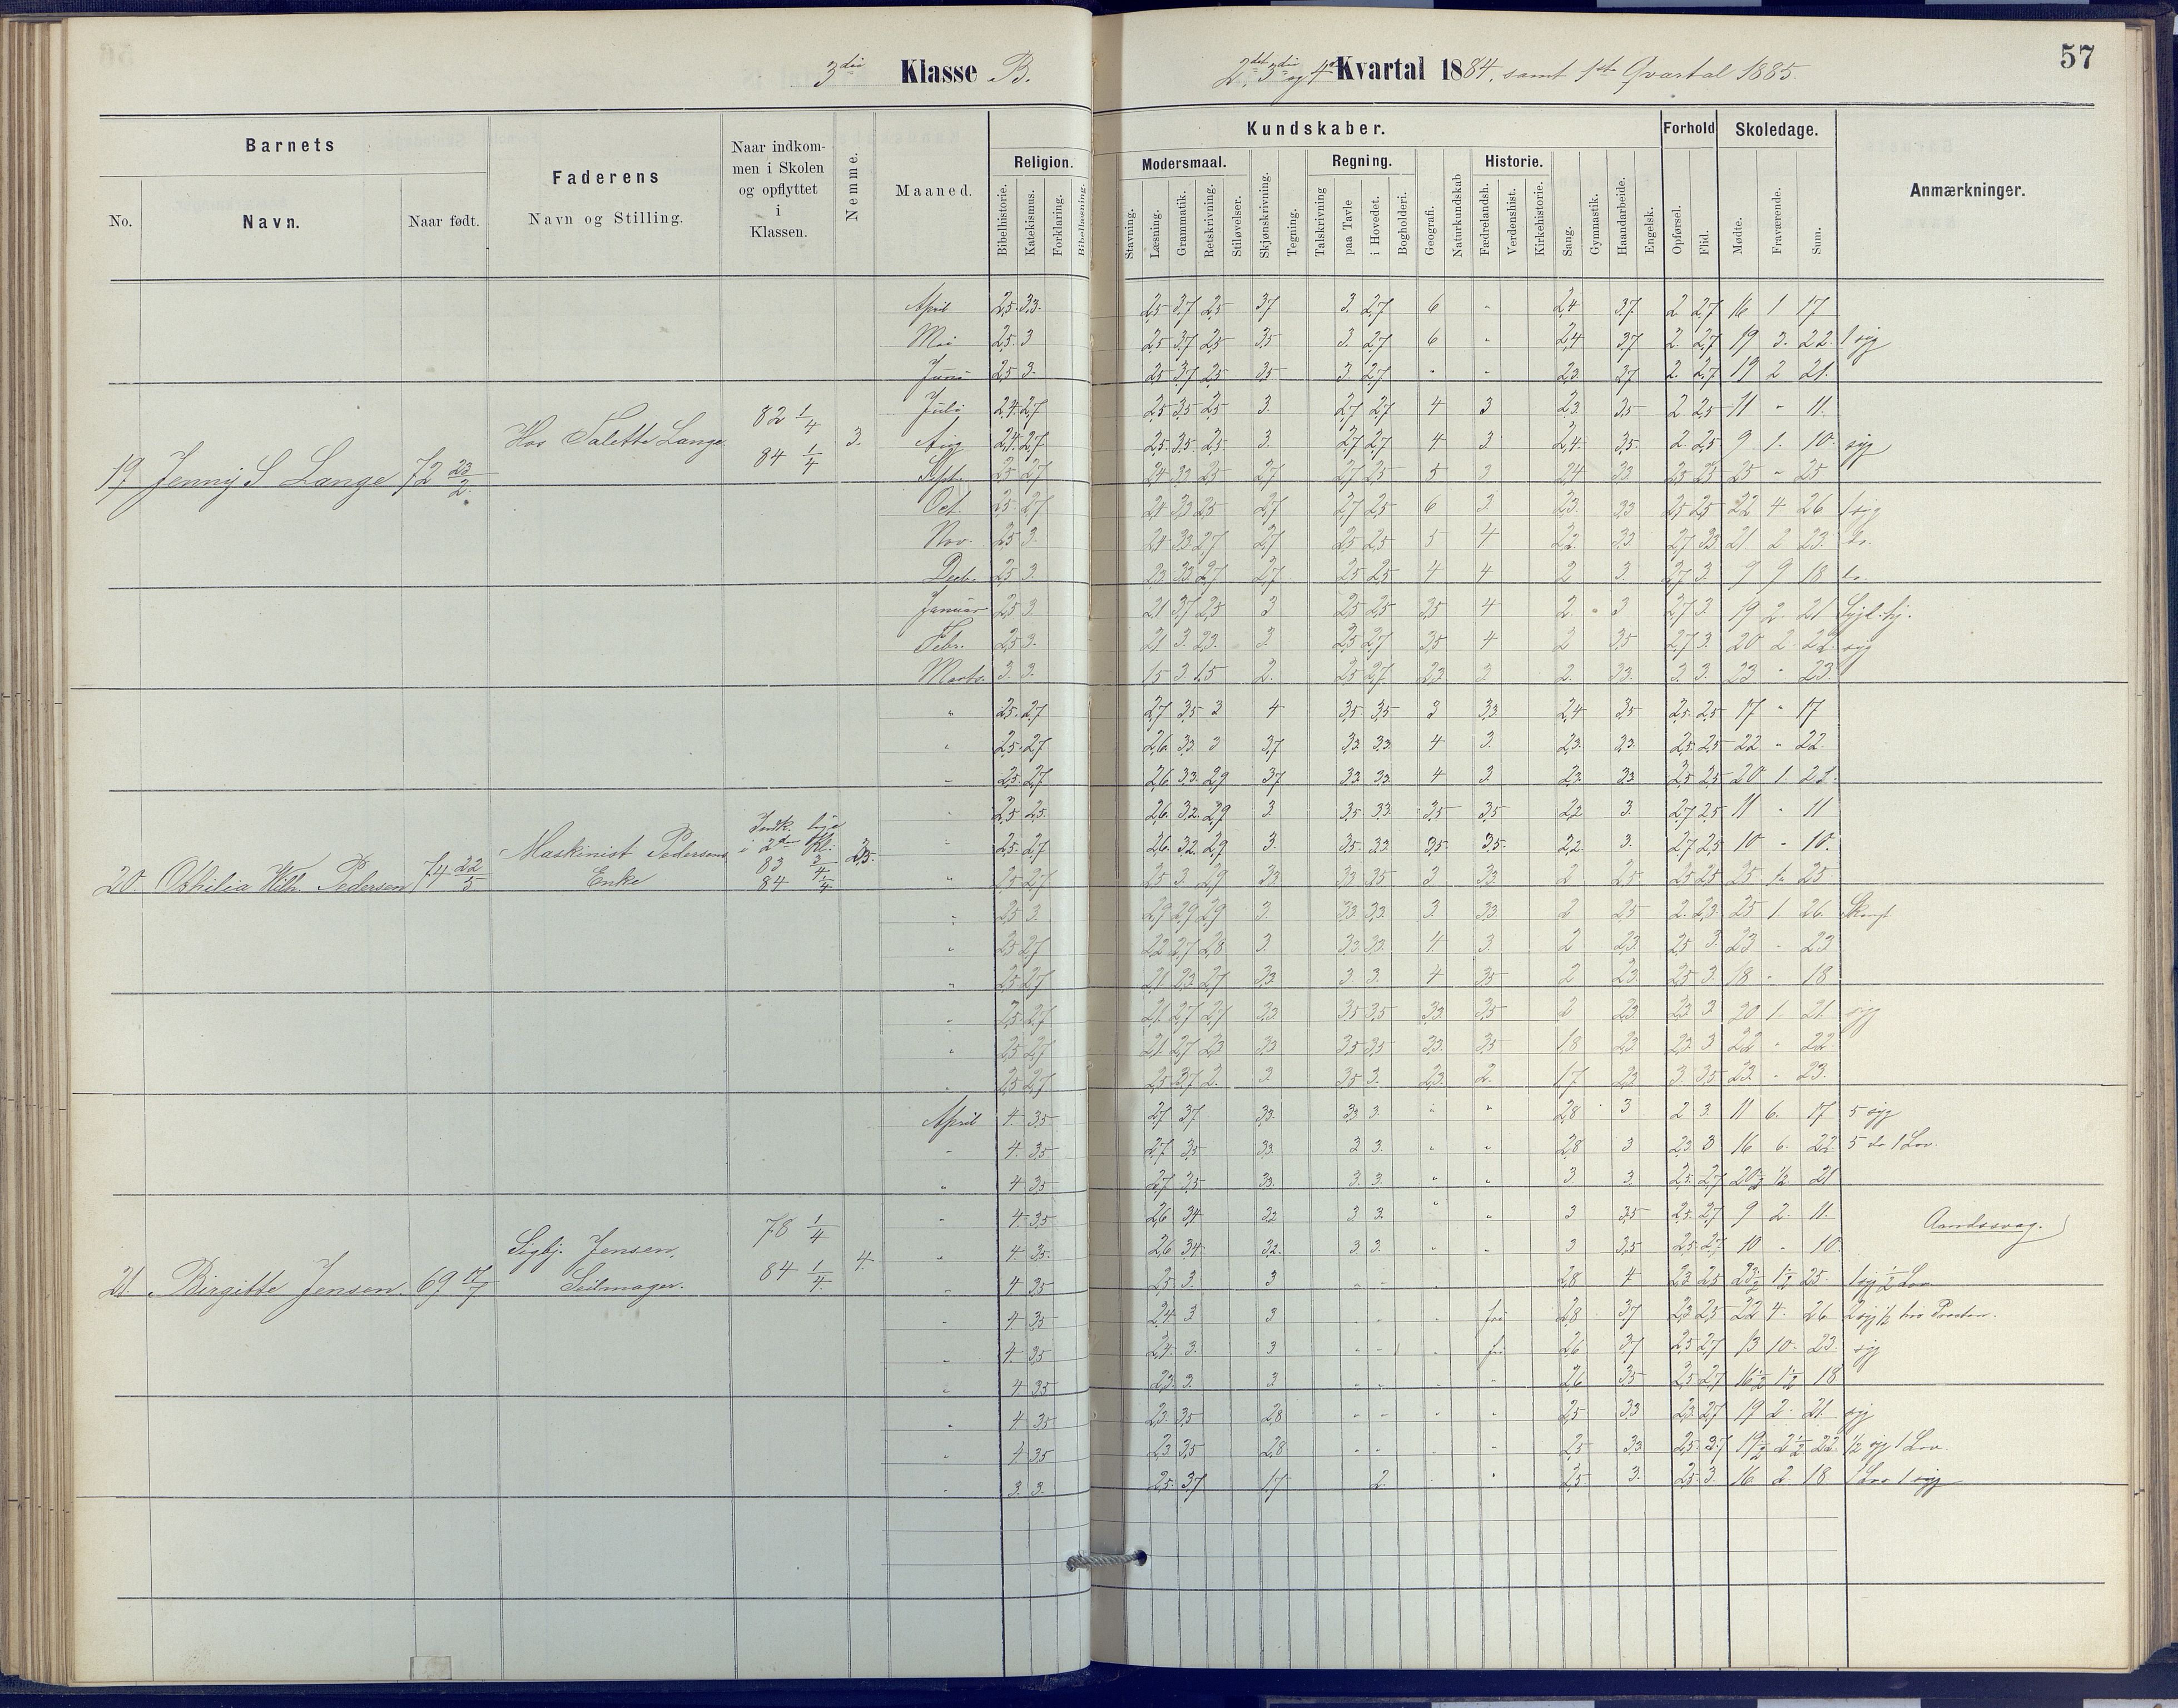 57
3die Klasse B.
2det 3die og 4de Kvartal 1884, samt 1ste Qvartal 1885.
Barnets
Faderens
Navn og Stilling.
Naar indkom-
men i Skolen
og opflyttet
i
Klassen.
Nemme.
Maaned.
Religion.
Kundskaber.
Modersmaal.
Regning.
Historie.
Forhold
Skoledage.
Anmærkninger.
No.
Navn.
Naar født.
Bibelhistorie.
Katekismus.
Forklaring.
Bibellæsning.
Stavning.
Læsning.
Grammatik.
Retskrivning.
Stiløvelser.
Skjønskrivning.
Tegning.
Talskrivning
paa Tavle
i Hovedet.
Bogholderi.
Geografi.
Naturkundskab
Fædrelandsh.
Verdenshist.
Kirkehistorie.
Sang.
Gymnastik.
Haandarbeide.
Engelsk.
Opførsel.
Flid.
Mødte.
Fraværende.
Sum.
19 Jenny S Lange 72 23/2
Hos Talette Lange.
82 1/4
84 1/4
3.
April 2,5 3,3 2,5 3,7 2,5 3,7 3. 2,7 6 " 2,4 3,7 2 2,7 16 1 17
Mai 2,5 3 2,5 3,7 2,5 3,5 3. 2,7 6 " 2,4 3,7 2 2,7 19 3. 22. 1 syg
Juni 2,5 3. 2,5 3,7 2,5 3,5 3 2,7 " " 2,3 3,7 2. 2,7 19 2 21.
Juli 2,4 2,7 2,5 3,5 2,5 3. 2,7 2,7 4 3 2,3 3,5 2 2,5 11 " 11.
Aug 2,4 2,7 2,5 3,5 2,5 3. 2,7 2,7 4 3 2,4 3,5 2 2,5 9 1. 10 syg
Sept. 2,5 2,7 2,4 3,3 2,5 2,7 2,7 2,5 5 3 2,4 3,3 2,5 2,5 25 " 25
Oct. 2,5 2,7 2,4 3,3 2,5 2,7 2,7 2,5 6 3. 2,3 3,3 2,5 2,5 22 4 26 1 syg
Nov. 2,5 3. 2,4 3,3 2,7 2,7 2,5 2,5 5 4 2,2 3,3 2,7 3,3 21 2 23. do.
Decb. 2,5 3. 2,3 3,3 2,7 2,7 2,5 2,5 4 4 2 3. 2,7 3. 9 9 18 do.
Januar 2,5 3. 2,1 3,7 2,5 3 2,5 2,5 3,5 4 2. 3 2,7 3. 19 2 21
Febr. 2,5 3. 2,1 3. 2,3 3. 2,5 2,7 3,5 4 2 3,5 2,7 3. 20 2 22 syg
Marts. 3. 3. 1,5 3 1,5 2. 2,5 2,7 2,3 3 2. 3,3 3 3. 23 " 23.
20 Othilia Wilh. Pedersen 74 22/5
Maskinist Pedersens
Enke
Indk. lige
i 2den Kl.
83 3/4
84 1/4
2,5.
" 2,5 2,7 2,7 3,5 3 4 3,5 3,5 3 3,3 2,4 3,5 2,5 2,5 17 " 17
" 2,5 2,7 2,6 3,3 3 3,7 3,3 3,3 4 3. 2,3 3,3 2,5 2,5 22 " 22.
" 2,5 2,7 2,6 3,3 2,9 3,7 3,3 3,3 4 3. 2,3 3,3 2,5 2,5 20 1 21.
" 2,5 2,5 2,6 3,2 2,9 3 3,5 3,3 3,5 3,5 2,2 3. 2,7 2,5 11 " 11
" 2,5 2,7 2,6 3,2 2,9 3. 3,5 3,3 3,5 3,5 2,2 3. 2,7 2,5 10 " 10.
" 2,5 2,7 2,5 3. 2,9 3,3 3,3 3,5 3 3,3 2 2,5 2,5 2,5 25 " 25
" 2,5 3. 2,9 2,9 2,9 3. 3,3 3,3 3. 3,3 2 2,5 2. 2,3 25 1. 26
" 2,5 2,7 2,2 2,7 2,8 3. 3,3 3,3 4 3. 2 2,3 2,5 3. 23 " 23
" 2,5 2,7 2,1 2,3 2,7 3,3 3. 3. 4 3,5 2 2,3 2,5 3. 18 " 18
" 2,5 2,7 2,1 2,7 2,7 3,3 3,5 3,5 3,3 3,5 2 2,3 2,3 3 20 1. 21. syg
" 2,5 2,7 2,1 2,7 2,3 3,3 3,5 3,5 3,3 3,5 1,8 2,3 2,3 3 22 " 22
" 2,5 2,7 2,5 3,7 2. 3. 3,5 3. 2,3 2. 1,7 2,3 3. 3,5 23. " 23.
21. Birgitte Jensen. 69 17/7
Sigbj. Jensen,
Seilmager.
78 1/4
84 1/4.
4.
April 4. 3,5 2,7 3,7 3,3 3,3 3. " " 2,8 3 2 3. 11 6. 17 5 syg
" 4. 3,5 2,7 3,5 3,3 3 3. " " 2,8 3 2,3 3 16 6. 22 5 do 1 Lov.
" 4 3,5 2,7 3,5 3,3 3. 3. " " 3 3. 2,5 2,7 20 1/2 1/2 21
" 4 3,5 2,6 3,4 3,2 3 3. " " 3 3,5 2,5 2,7 9 2. 11. Aandssvag.
" 4 3,5 2,6 3,4 3,2 3 3. " " 3 3,5 2,5 2,7 10 " 10
" 4 3,5 2,5 3. 3 " " 2,8 4 2,3 2,5 23 1/2 1 1/2 25 1 syg 1/2 Lov
" 4 3,5 2,4 3 3 " " " fri 2,8 3,7 2,3 2,5 22 4. 26 2 syg 1/2 hos Præsten.
" 4 3,5 2,4 3. 3 " " " fri 2,6 3,7 2,5 2,7 13 10 23. syg
" 4 3,5 2,3 3. 3 " " " " 2,6 3,5 2,5 2,7 16 1/2 1 1/2 18
" 4 3,5 2,3 3,5 2,8 " " " " 2,5 3,3 2,3 2,7 19 2. 21. syg
" 4 3,5 2,3 3,5 2,8 " " " " 2,5 3,3 2,5 3,7 19 1/2 2 1/2 22 1/2 syg 1 Lov.
" 3. 3. 2,5 3,7 1,7 2. " " 2,5 3. 2,5 3. 16 2 18 1 Lov 1 syg